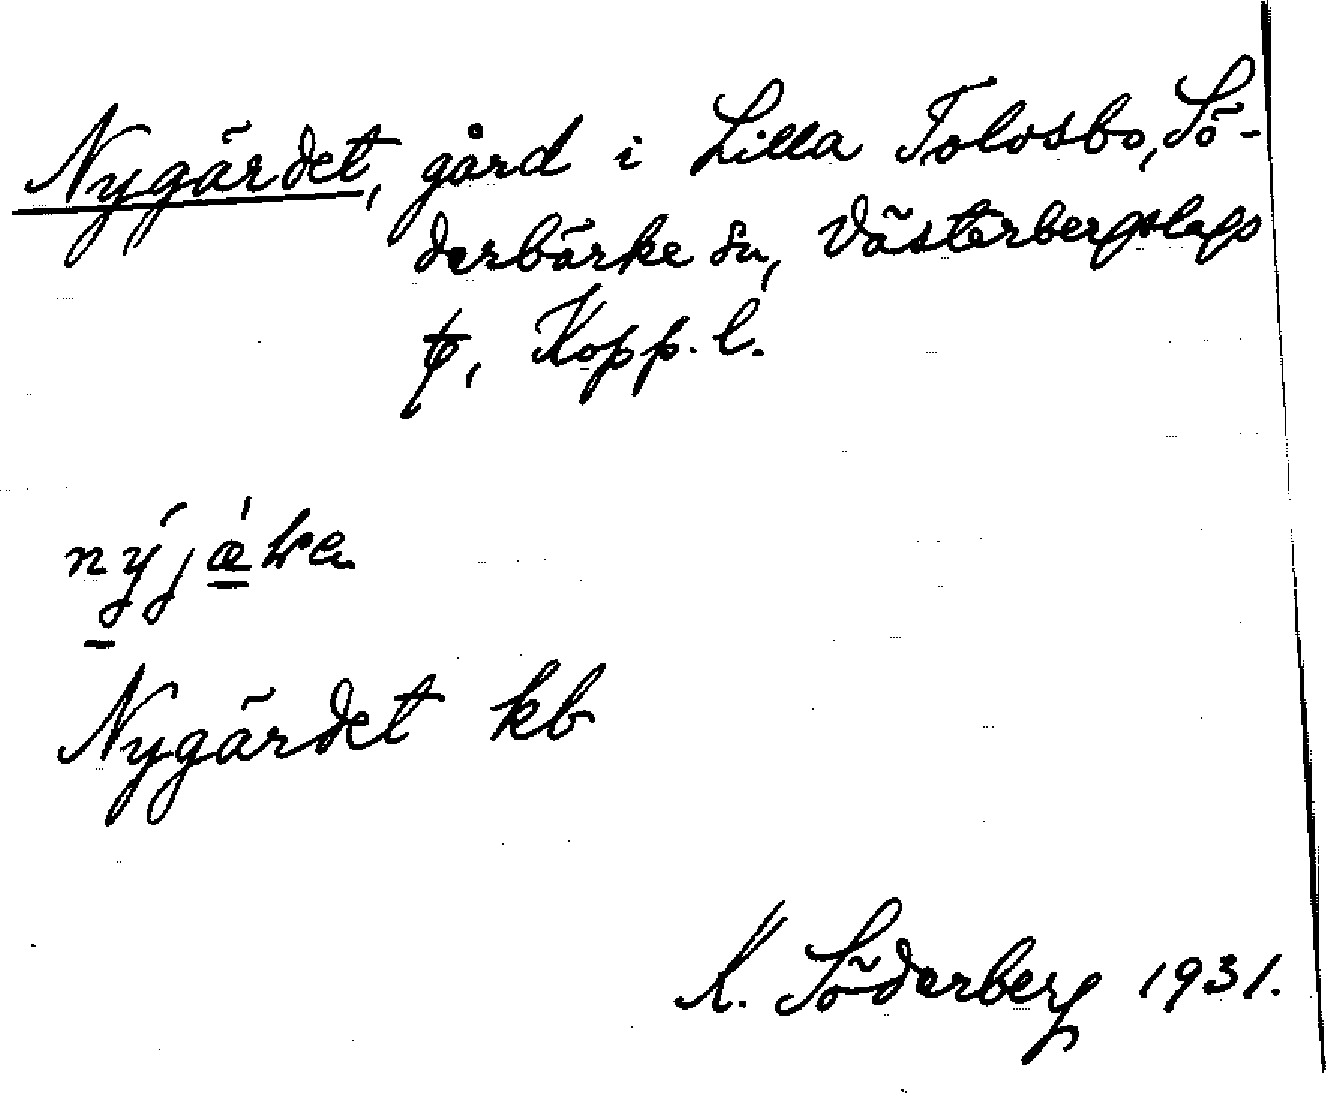 Nygärdet, gård i Lilla Tolvsbo, Sö-
derbärke sn, Västerbergslags
tg, Kopp. l.
Nygärdet kb
K. Söderberg 1931.